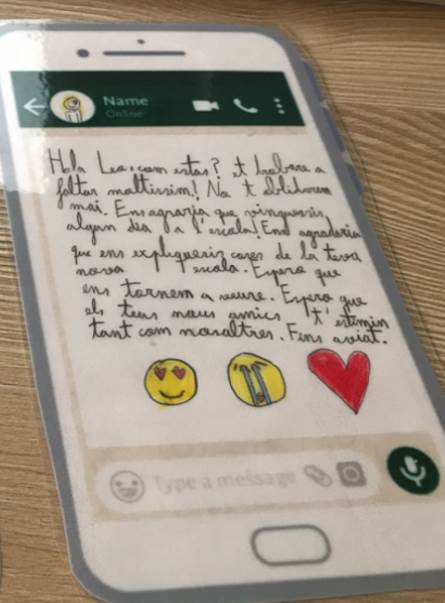 Name
Online
Hola Lea, com estas? et trobare a
faltar moltissim! No t oblidarem
mai. Ens agraria que vinguessis
algun dia a l'escola! Ens agradaria
que ens expliquesis coses de la teva
nova escola. Espero que
ens tornem a veure. Espero que
els teus nous amics t'estimin
tant com nosaltres. Fins aviat.
Type a message